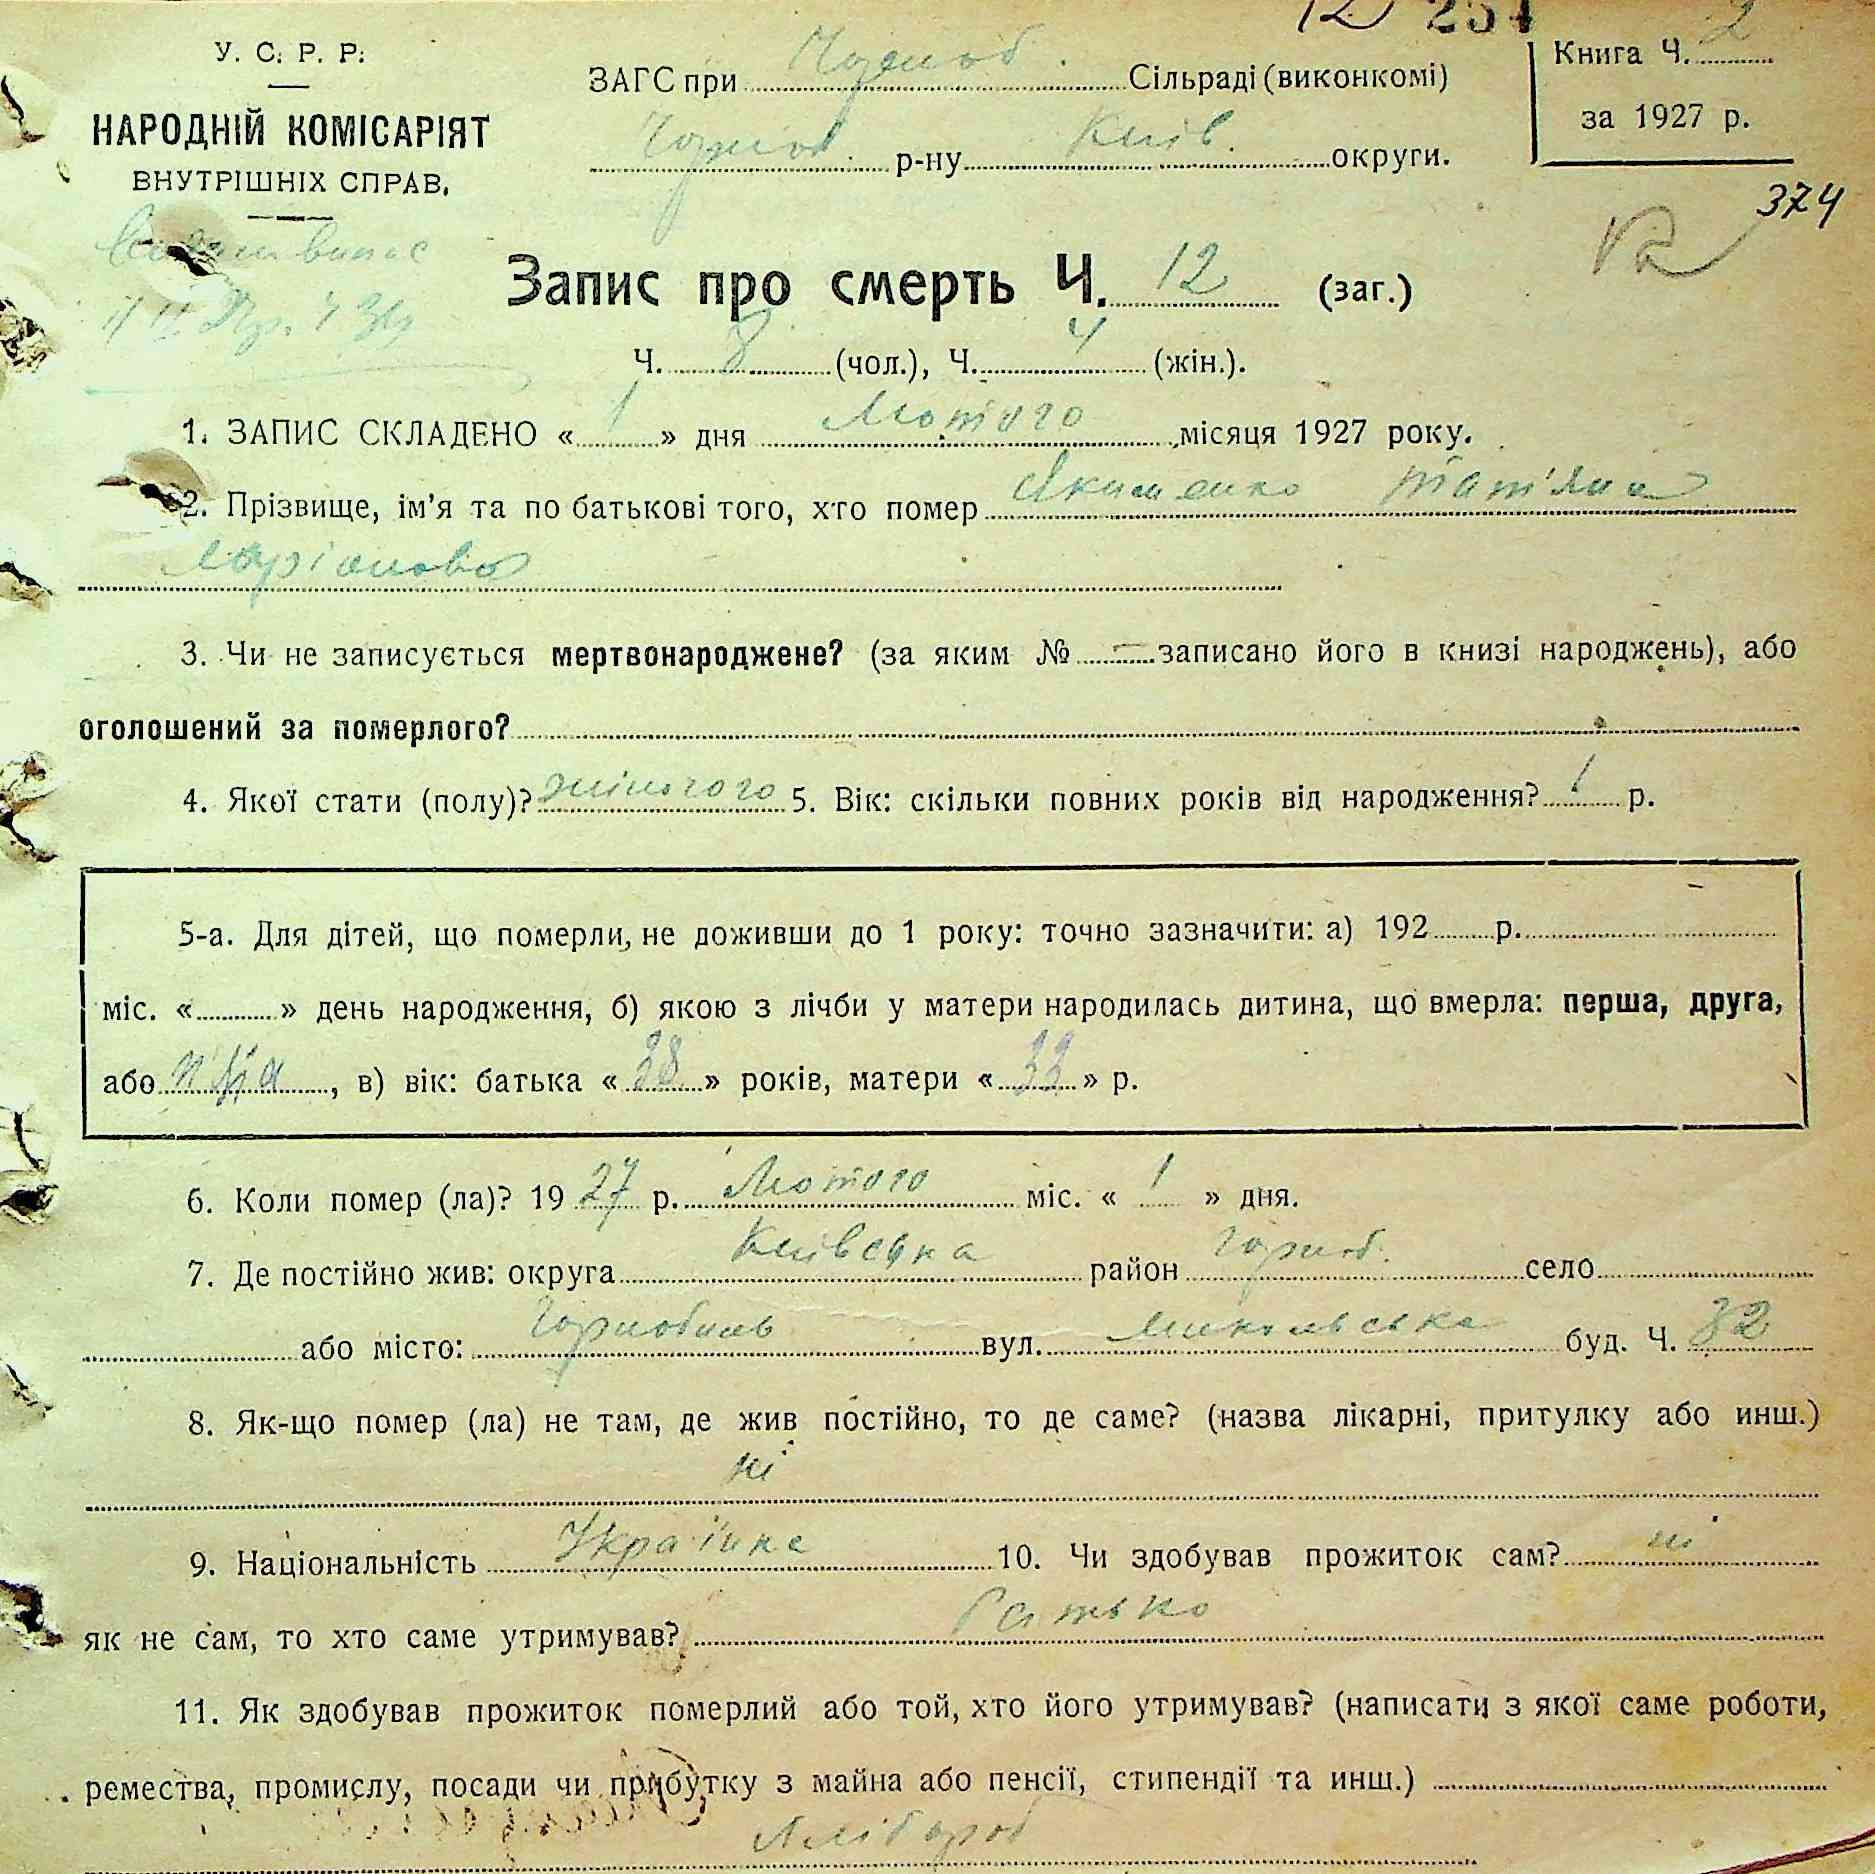 12 254
У. С. Р. Р.
НАРОДНІЙ КОМІСАРІЯТ
ВНУТРІШНІХ СПРАВ.
ЗАГС при Чорноб. Сільраді (виконкомі)
Чорноб. р-ну Київ. округи.
Книга Ч. 2
за 1927 р.
374
Запис про смерть Ч. 12 (заг.)
Ч. 8 (чол.), Ч. 4 (жін.).
1. ЗАПИС СКЛАДЕНО « 1 » дня Лютого місяця 1927 року.
2. Прізвище, ім'я та по батькові того, хто помер Якименко Тат'яна
Ларіонова
3. Чи не записується мертвонароджене? (за яким № — записано його в книзі народжень), або
оголошений за померлого?
4. Якої стати (полу)? жіночого 5. Вік: скільки повних років від народження? 1 р.
5-а. Для дітей, що померли, не доживши до 1 року: точно зазначити: а) 192 р.
міс. « » день народження, б) якою з лічби у матери народилась дитина, що вмерла: перша, друга,
або , в) вік: батька « 38 » років, матери « 33 » р.
6. Коли помер (ла)? 19 27 р. Лютого міс. « 1 » дня.
7. Де постійно жив: округа Київська район Чорноб. село
або місто: Чорнобиль вул. Микольська буд. Ч. 32
8. Як-що помер (ла) не там, де жив постійно, то де саме? (назва лікарні, притулку або инш.)
ні
9. Національність Українка 10. Чи здобував прожиток сам? ні
як не сам, то хто саме утримував? Батько
11. Як здобував прожиток померлий або той, хто його утримував? (написати з якої саме роботи,
ремества, промислу, посади чи прибутку з майна або пенсії, стипендії та инш.)
Хлібороб